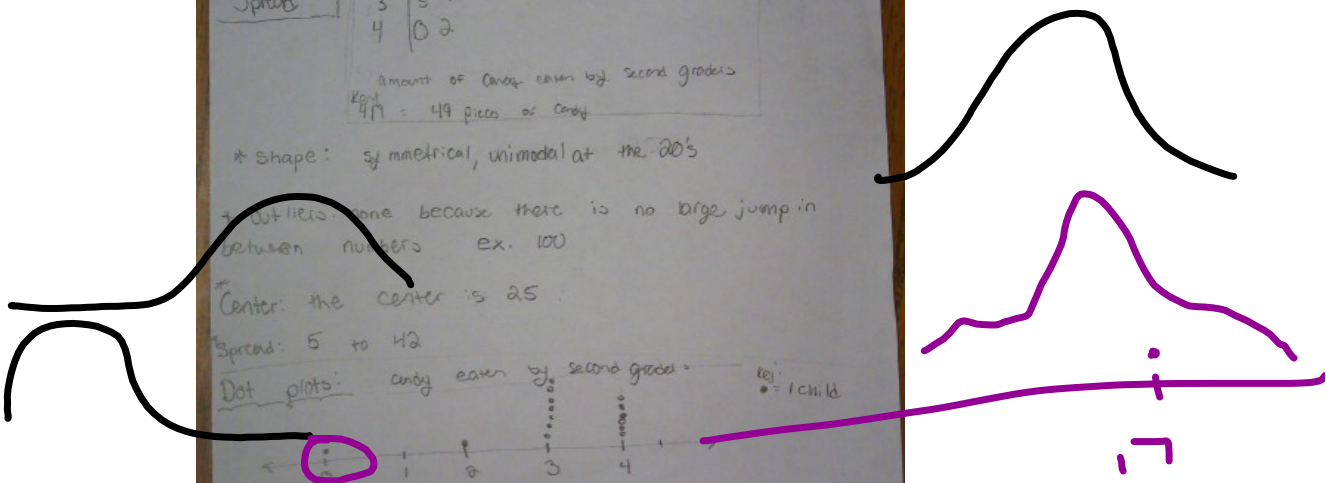 Spread
3 | 5
4 | 0 2
amount of candy eaten by second graders
Key
= 49 pieces of candy
* Shape: symmetrical, unimodal at the 20's
* Outliers: none because there is no large jump in
between numbers ex. 100
* Center: the center is 25
* Spread: 5 to 42
Dot plots: candy eaten by second grades
Key:
• = 1 child
0 1 2 3 4
17